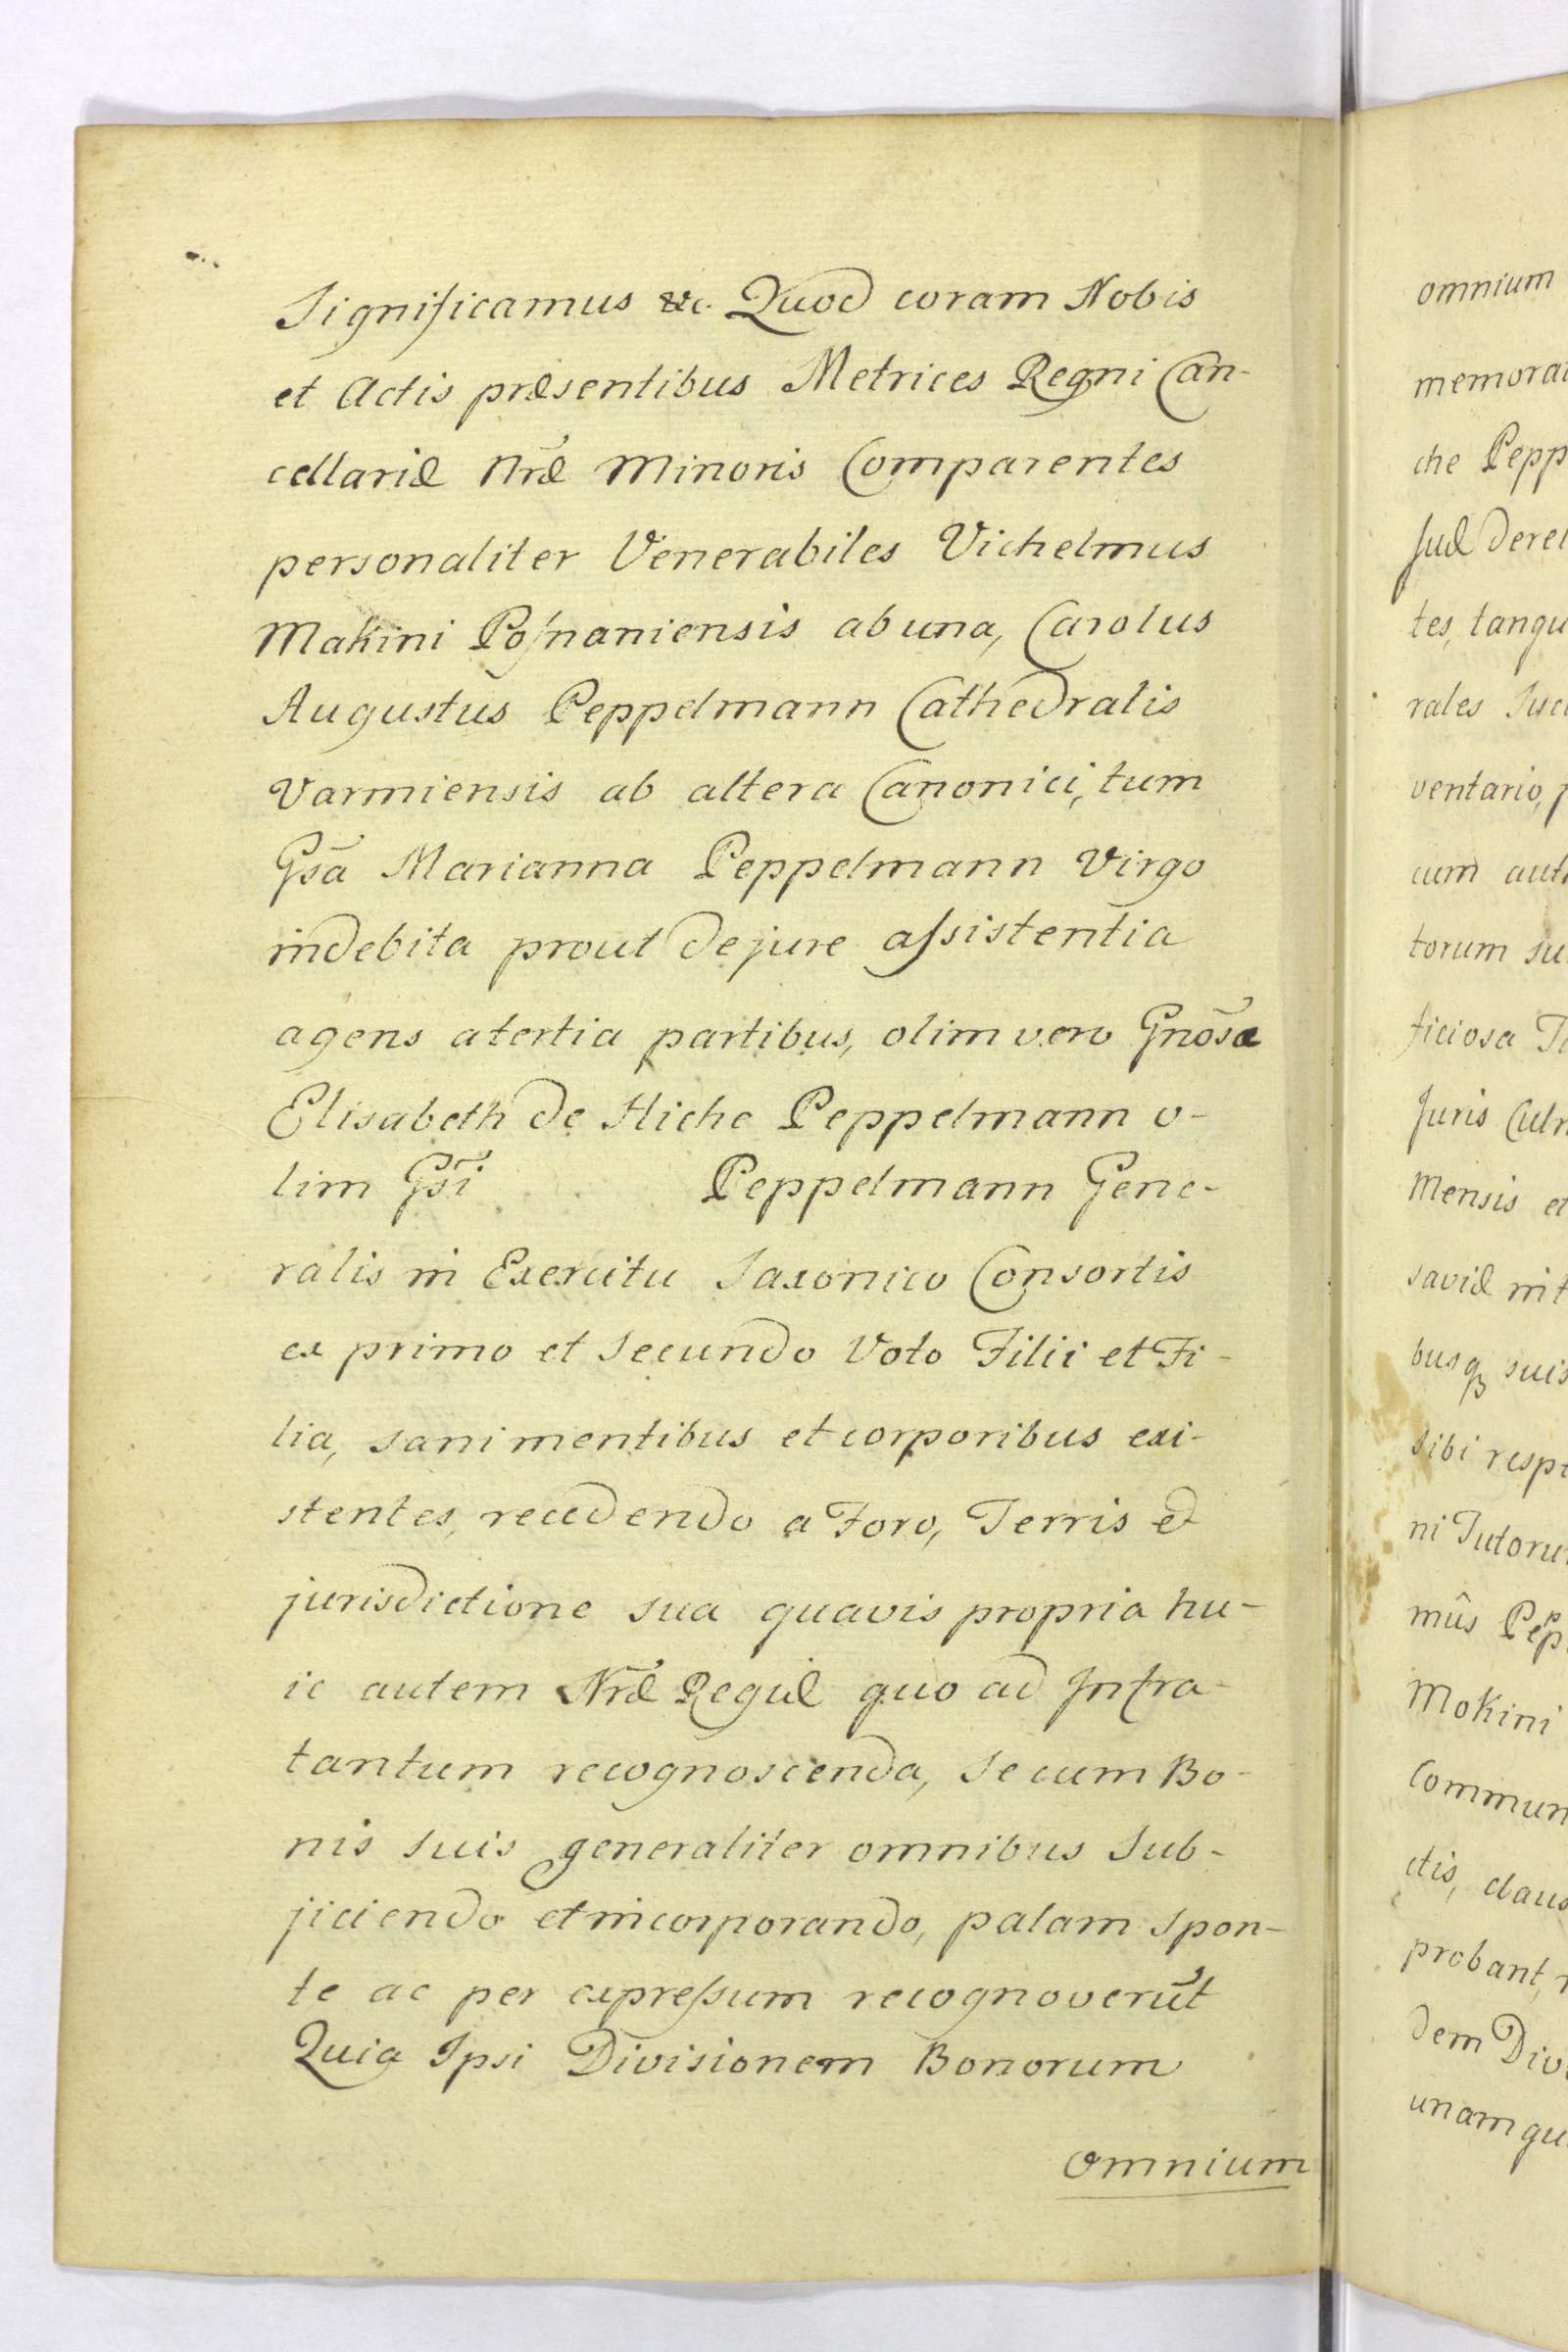 Significamus &c. Quod coram Nobis
et Actis præsentibus Metrices Regni Can-
cellariæ Nræ Minoris Comparentes
personaliter Venerabiles Vichelmus
Makini Posnaniensis ab una, Carolus
Augustus Peppelmann Cathedralis
Varmiensis ab altera Canonici, tum
Gsa Marianna Peppelmann Virgo
in debita prout de jure assistentia
agens a tertia partibus, olim vero Gnosæ
Elisabeth de Hiche Peppelmann o-
lim Gsi Peppelmann Gene-
ralis in Exercitu Saxonico Consortis
ex primo et secundo Voto Filii et Fi-
lia, sani mentibus et corporibus exi-
stentes, recedendo a Foro, Terris et
jurisdictione sua quavis propria hu-
ic autem Nræ Regiæ quo ad Infra-
tantum recognoscenda, se cum Bo-
nis suis generaliter omnibus Sub-
jiciendo et incorporando, palam spon-
te ac per expressum recognoverūt
Quia Ipsi Divisionem Bonorum
omnium
omnium
memora
che Pepp
suæ dere
tes, tanqu
rales Suc
ventario, p
cum aut
torum su
ficiosa
Juris Culm
Mensis et
saviæ int
busq suis
sibi resp
ni Tutoru
mûs Pepp
Mokini
Commun
ctis, claus
probant,
dem Div
unamqu